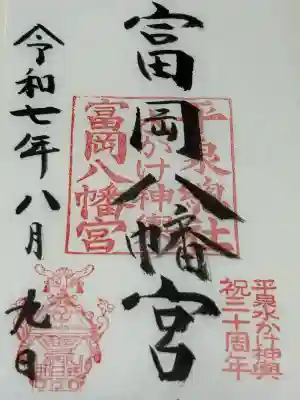 富岡八幡宮
令和七年八月九日
平泉
かけ神
富岡八幡宮
平泉水かけ神輿
祝三十周年